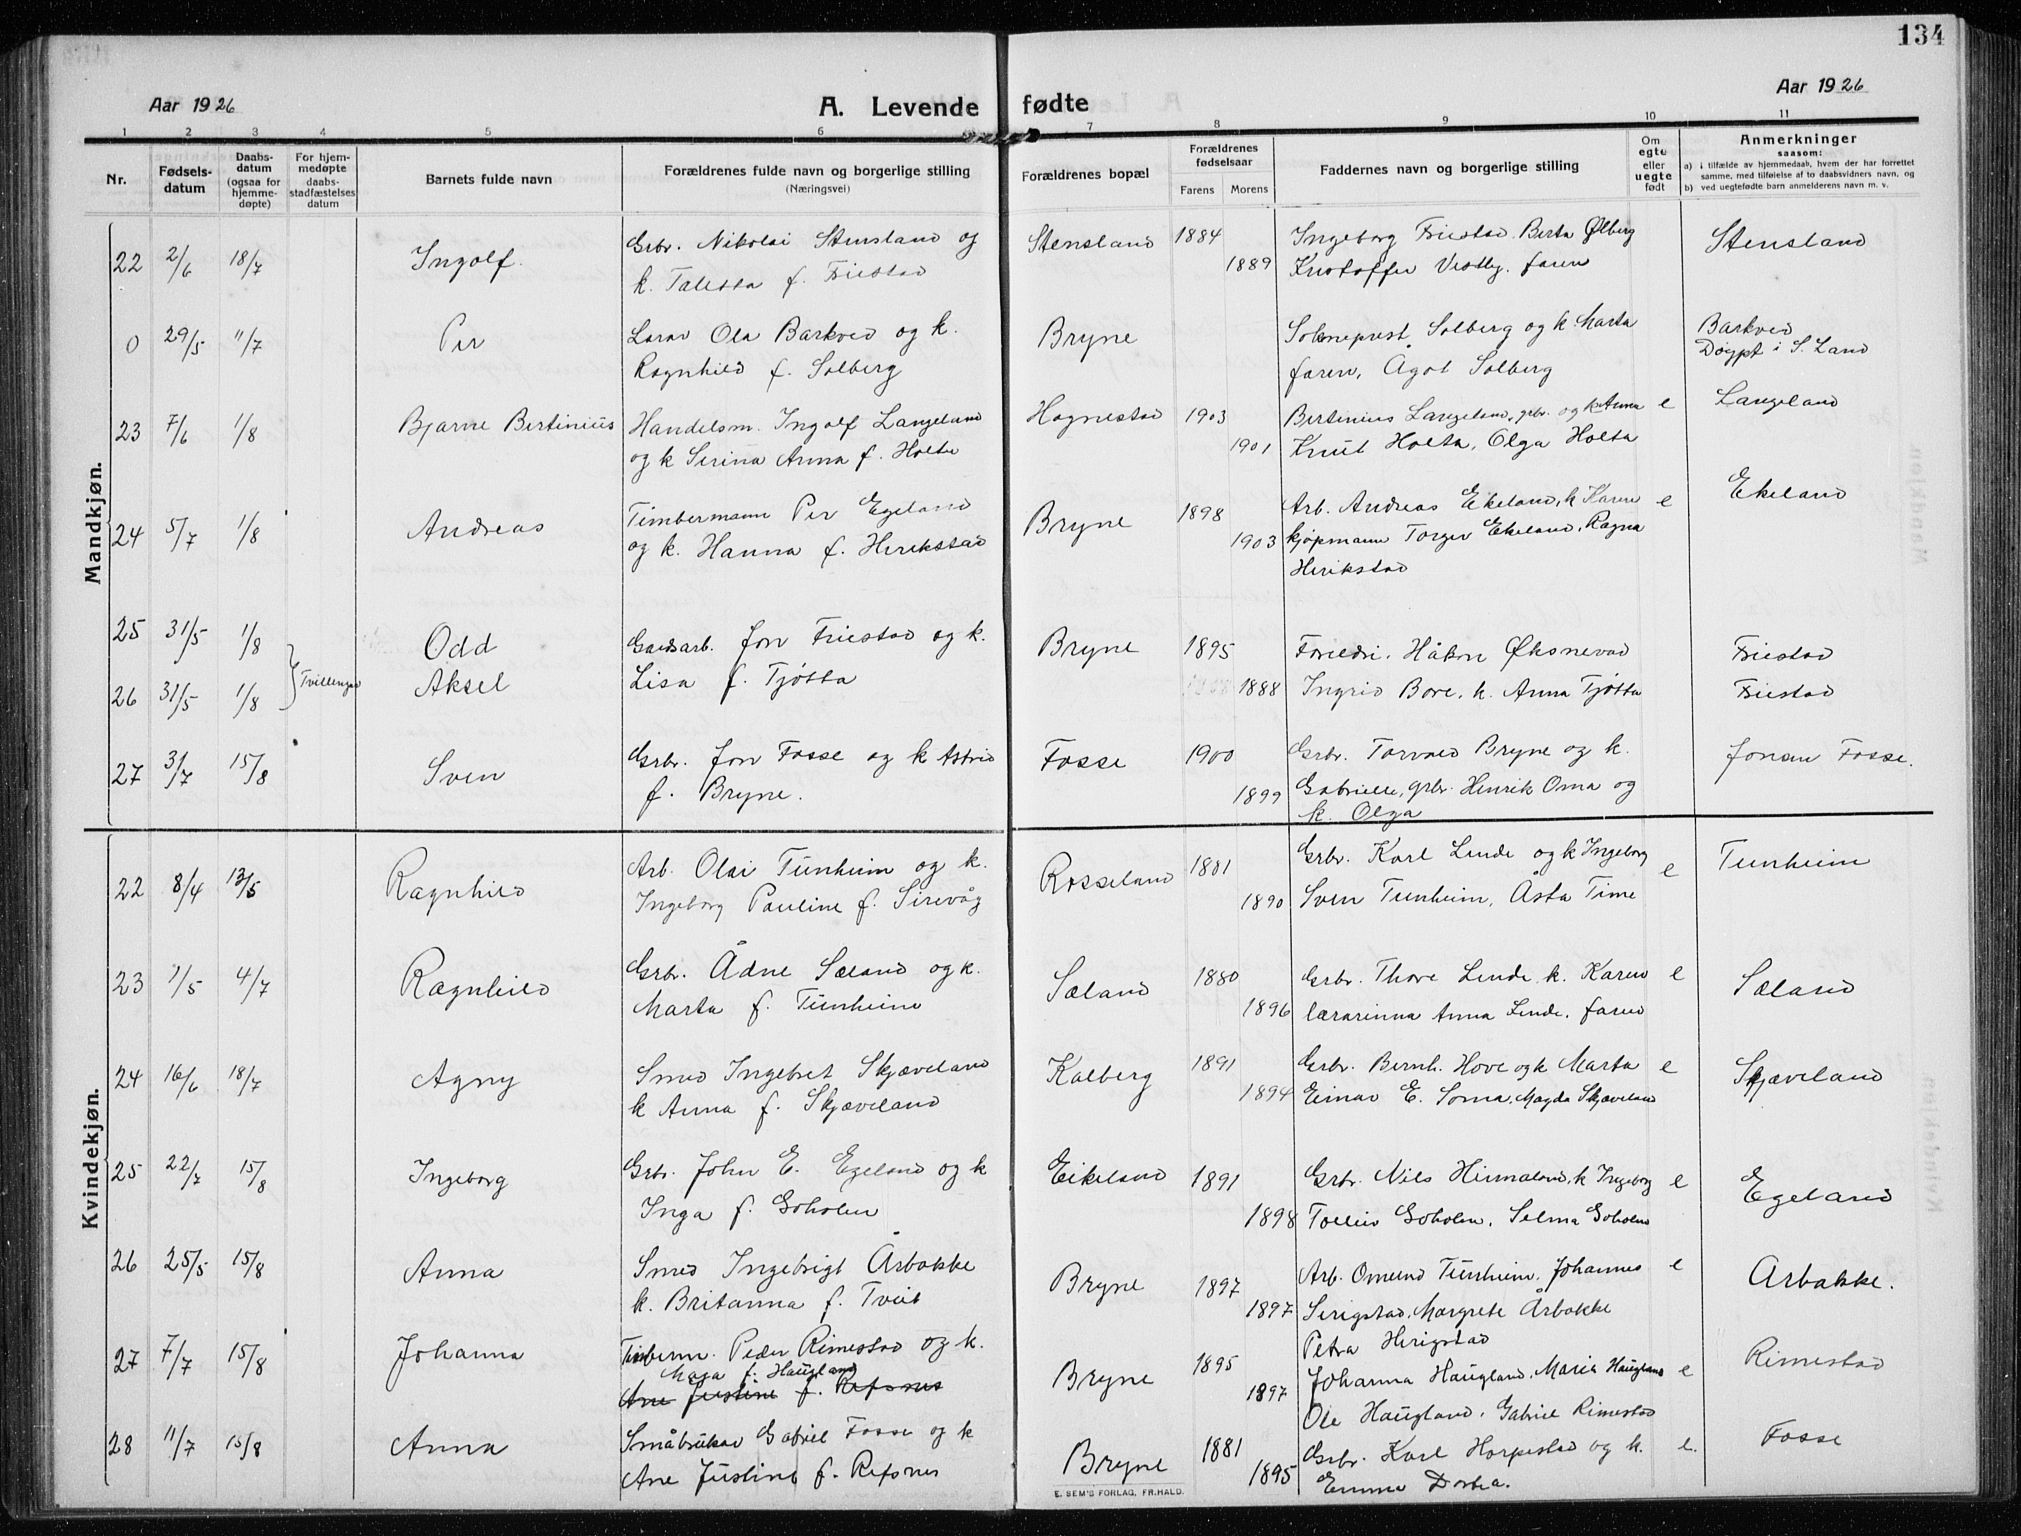 134
Aar 1926
A. Levende fødte
Aar 1926
1 2 3 4 5 6 7 8 9 10 11
Nr.
Fødsels-
datum
Daabs-
datum
(ogsaa for
hjemme-
døpte)
For hjem-
medøpte
daabs-
stadfæstelses
datum
Barnets fulde navn
Forældrenes fulde navn og borgerlige stilling
(Næringsvei)
Forældrenes bopæl
Forældrenes
fødselsaar
Farens Morens
Faddernes navn og borgerlige stilling
Om
egte
eller
uegte
født
Anmerkninger
saasom:
a) i tilfælde av hjemmedaab, hvem der har forrettet
samme, med tilføielse af to daabsvidners navn, og
b) ved uegtefødte barn anmelderens navn m. v.
Mandkjøn.
22 2/6 18/7 Ingolf. Grbr. Nikolai Stensland og Stensland 1884 Ingeborg Friestad Berta Ølberg Stensland
k. Taletta f. Friestad 1889 Kristoffer Vestly. faren
0 29/5 11/7 Per Lærar Ola Barkved og k. Bryne Sokneprest Solberg og k Marta Barkved
Ragnhild f. Solberg faren, Ågot Solberg Døypt i S. Land
23 7/6 1/8 Bjarne Bertinius Handelsm. Ingolf Langeland Hognestad 1903 Bertinius Langeland, grbr. og k Anna e Langeland
og k Serina Anna f. Holta 1901 Knut Holta, Olga Holta
24 5/7 1/8 Andreas Timbermann Per Egeland Bryne 1898 Arb. Andreas Ekeland, k Karen e Ekeland
og k. Hanna f. Herikstad 1903 kjøpmann Torger Ekeland, Ragna
Herikstad
25 31/5 1/8 Odd Gardsarb. Jon Friestad og k. Bryne 1895 Foreldri. Håkon Øksnevad Friestad
Tvillingar
26 31/5 1/8 Aksel Lisa f. Tjøtta 1888 Ingrid Bore, k. Anna Tjøtta Friestad
27 3/7 15/8 Sven Grbr. Jon Fosse og k Astrid Fosse 1900 Grbr. Torvald Bryne og k. Jonan Fosse.
f. Bryne. 1899 Gabrielle, grbr. Henrik Oma og
k. Olga
Kvindekjøn.
22 8/4 13/5 Ragnhild Arb. Olai Tunheim og k. Rosseland 1881 Grbr. Karl Lende og k Ingeborg e Tunheim
Ingeborg Pauline f. Sirevåg 1890 Sven Tunheim, Åsta Time
23 1/5 4/7 Ragnhild Grbr. Ådne Sæland og k. Sæland 1880 Grbr. Thore Lende k. Karen e Sæland
Marta f. Tunheim 1896 lærarinna Anna Lende, faren
24 16/6 18/7 Agny Smed Ingebret Skjæveland Kalberg 1891 Grbr. Bernh. Hove og k Marta e Skjæveland
k Anna f. Skjæveland 1894 Einar E. Soma, Magda Skjæveland
25 22/7 15/8 Ingeborg Grbr. John E. Egeland og k Eikeland 1891 Grbr. Nils Hinnaland, k Ingeborg e Egeland
Inga f. Goholen 1898 Tolleiv Goholen, Selma Goholen
26 25/5 15/8 Anna Smed Ingebrigt Årbakke Bryne 1897 Arb. Omund Tunheim, Johannes e Årbakke.
k. Britanna f. Tveit 1897 Serigstad, Margrete Årbakke
Petra Herigstad
27 7/7 15/8 Johanna Timberm. Peder Rimestad og k. Bryne 1895 Johanna Haugland, Maria Haugland e Rimestad
Maga f. Haugland
Ane Justine f. Refsnes 1897 Ole Haugland, Gabriel Rimestad
28 11/7 15/8 Anna Småbrukar Gabriel Fosse og k Bryne 1881 Grbr. Karl Horpestad og k. e. Fosse
Ane Justine f. Refsnes 1895 Emma Dortea.
E. SEM'S FORLAG, FR.HALD.